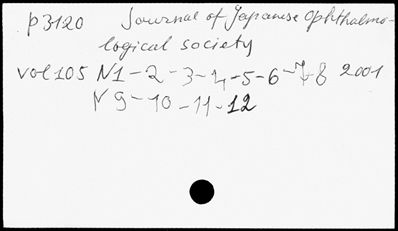 p3120 Journal of Japanese Ophthalmo-
logical society
vol 105 N1-2-3-4-5-6-7-8 2001
N9-10-11-12